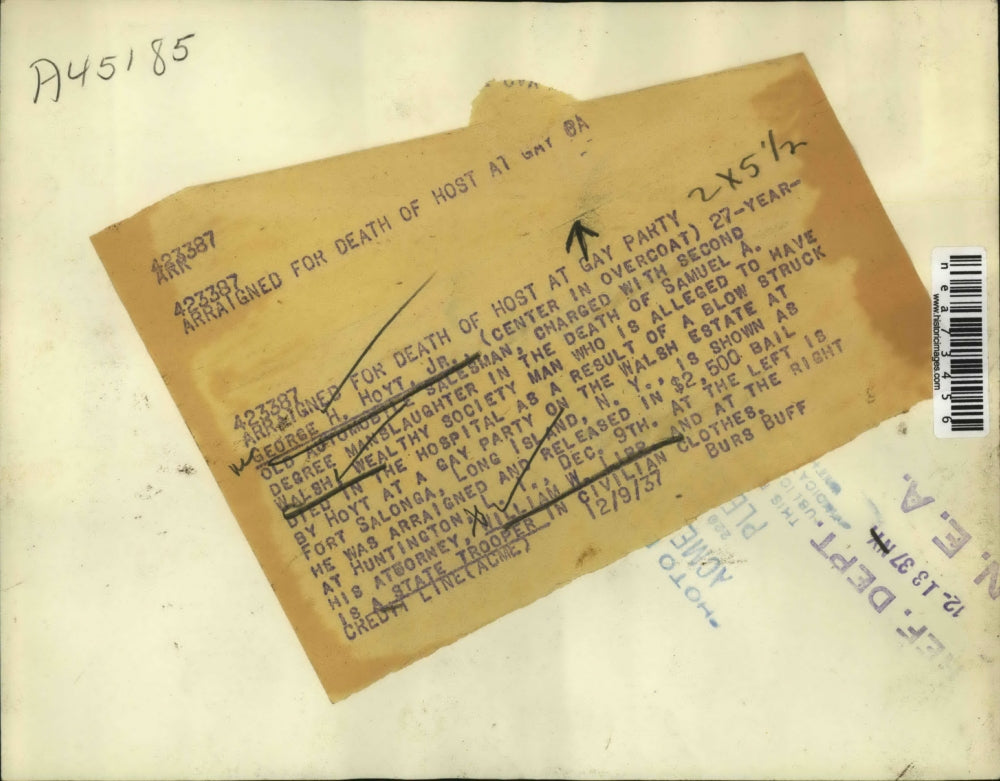 A45185
423387
ARR
423387
ARRAIGNED FOR DEATH OF HOST AT GAY PA
2 X 5 1/2
423387
ARRAIGNED FOR DEATH OF HOST AT GAY PARTY
GEORGE H. HOYT, JR., (CENTER IN OVERCOAT) 27-YEAR-
OLD AUTOMOBILE SALESMAN, CHARGED WITH SECOND
DEGREE MANSLAUGHTER IN THE DEATH OF SAMUEL A.
WALSH, WEALTHY SOCIETY MAN WHO IS ALLEGED TO HAVE
DIED IN THE HOSPITAL AS A RESULT OF A BLOW STRUCK
BY HOYT AT A GAY PARTY ON THE WALSH ESTATE AT
FORT SALONGA, LONG ISLAND, N. Y., IS SHOWN AS
HE WAS ARRAIGNED AND RELEASED IN $2,500 BAIL
AT HUNTINGTON, L. I., DEC. 9TH. AT THE LEFT IS
HIS ATTORNEY, WILLIAM AND AT THE RIGHT
IS A STATE TROOPER IN CIVILIAN CLOTHES.
CREDIT LINE (ACME) 12/9/37 BURS BUFF
PHOTO
ACME
PLE
THIS
PUBLIC
REF. DEPT.
12-13 37
N. E. A.
nea734456
www.historicimages.com